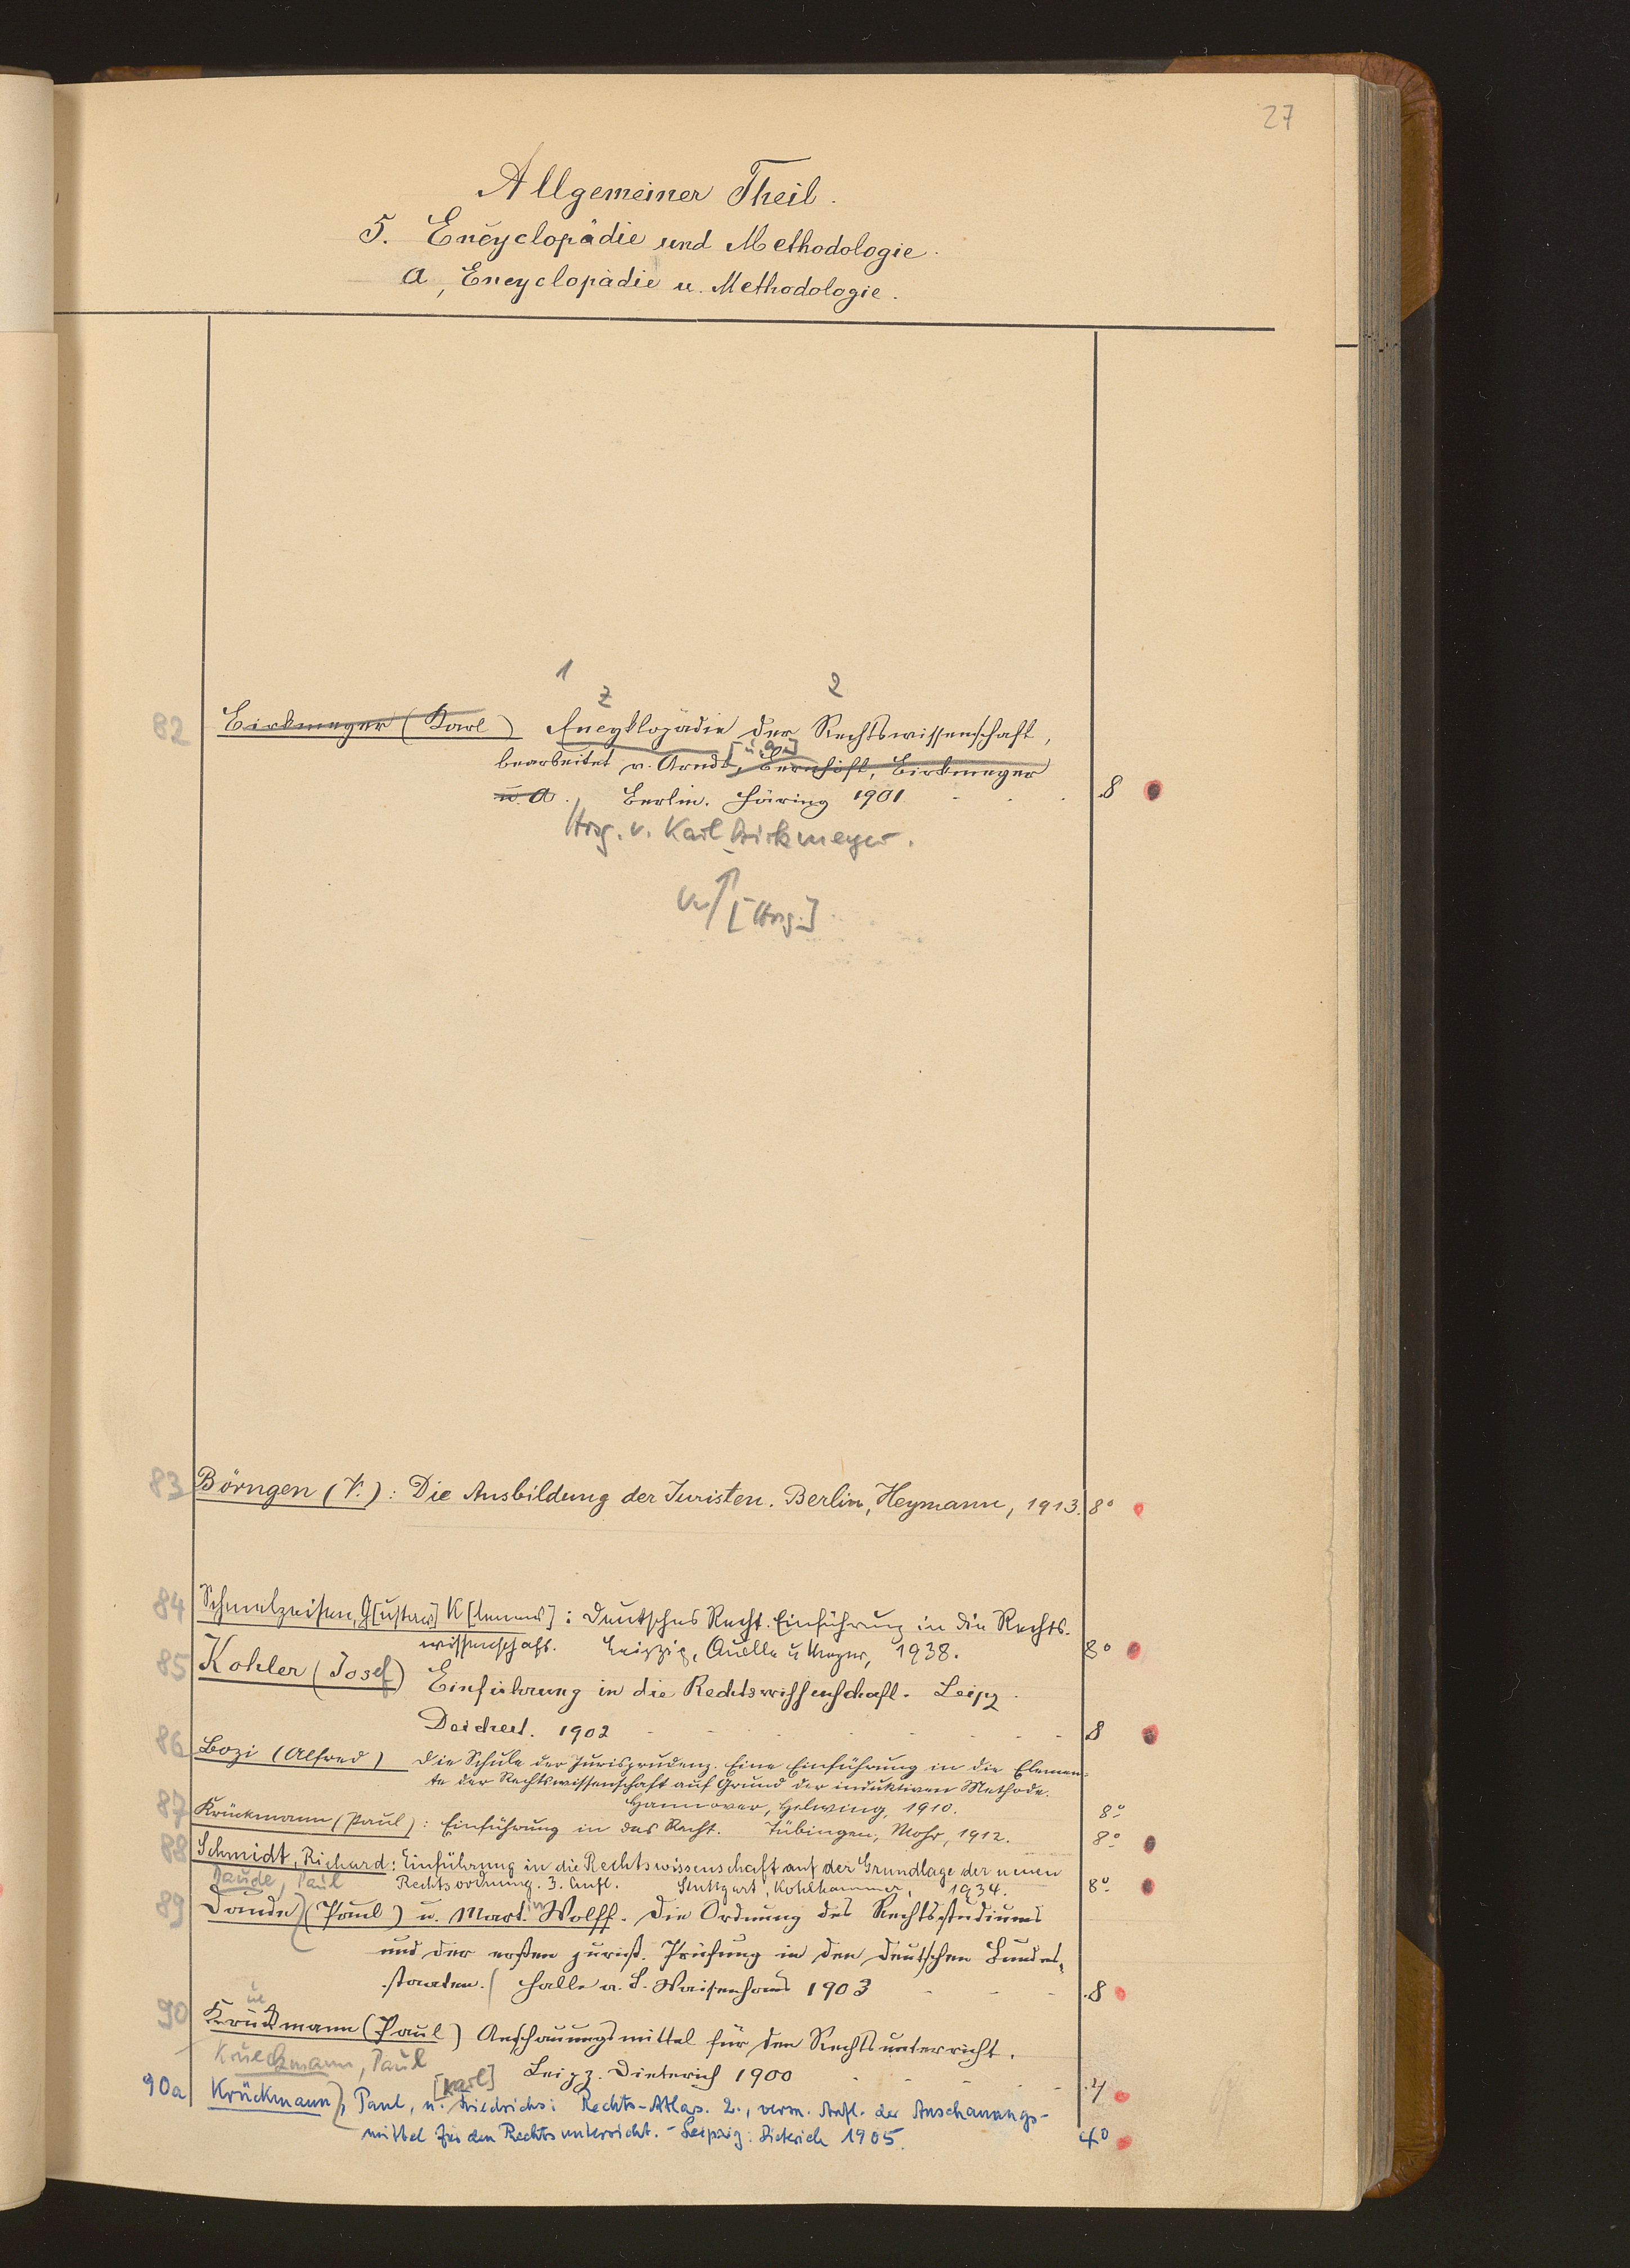 27
Allgemeiner Theil.
5. Encyclopädie und Methodologie.
a, Encyclopädie u. Methodologie.
1 2
z
82 Birkmeyer (Karl) Encyklopädie der Rechtswissenschaft,
[u.a.]
bearbeitet v. Arndt, Bernhöft, Birkmeyer
u. A. Berlin. Häring 1901 - - - 8
Hrsg. v. Karl Birkmeyer.
[Hrsg.]
83 Börngen (V.): Die Ausbildung der Juristen. Berlin, Heymann, 1913. 8°
84 Schmelzeisen, G[ustav] K[lemens]: Deutsches Recht. Einführung in die Rechts-
wissenschaft. Leipzig, Quelle u. Meyer, 1938. 8°
85 Kohler (Josef) Einführung in die Rechtswissenschaft. Leipz.
Deichert. 1902 - - - - - - 8
86 Bozi (Alfred) Die Schule der Jurisprudenz. Eine Einführung in die Elemen-
te der Rechtswissenschaft auf Grund der induktiven Methode.
Hannover, Helwing, 1910. 8°
87 Krückmann (Paul): Einführung in das Recht. Tübingen, Mohr, 1912. 8°
88 Schmidt, Richard: Einführung in die Rechtswissenschaft auf der Grundlage der neuen
Rechtsordnung. 3. Aufl. Stuttgart, Kohlhammer, 1934. 8°
Daude, Paul
89 Daude (Paul) u. Mart.in Wolff. Die Ordnung des Rechtsstudiums
und der ersten jurist. Prüfung in den deutschen Bundes-
staaten. Halle a. S. Waisenhaus 1903 - - - 8
ue
90 Krückmann (Paul) Anschauungsmittel für den Rechtsunterricht.
Krueckmann, Paul
Leipz. Dieterich 1900 - - - - - 4
[Karl]
90a Krückmann, Paul, u. Friedrichs: Rechts-Atlas. 2., verm. Aufl. der Anschauungs-
mittel für den Rechtsunterricht. - Leipzig: Dieterich 1905. 4°